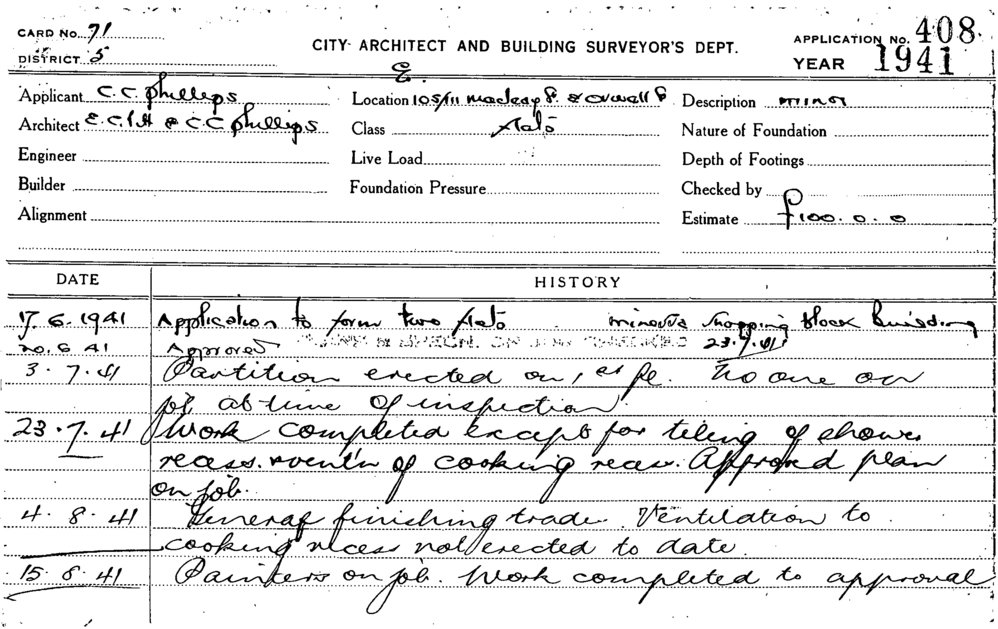 CARD No. 71
DISTRICT 5
CITY ARCHITECT AND BUILDING SURVEYOR'S DEPT.
APPLICATION No. 408
YEAR 1941
E.
Applicant C. C. Phillips
Location 105/111 Macleay St & Orwell St
Description minor
Architect E. C. Pitt & C C Phillips
Class flats
Nature of Foundation
Engineer
Live Load
Depth of Footings
Builder
Foundation Pressure
Checked by
Alignment
Estimate £100.0.0
DATE HISTORY
17.6.1941 Application to form two flats minerva shopping block building
20.6.41 Approved PLANS & SPECN. ON JOB CHECKED 23.7.41
3.7.41 Partition erected on 1st fl. No one on
job at time of inspection.
23.7.41 Work completed except for tiling of shower
recess & vent'n of cooking recess. Approved plan
on job.
4.8.41 General finishing trade. Ventilation to
cooking recess not erected to date.
15.8.41 Painters on job. Work completed to approval